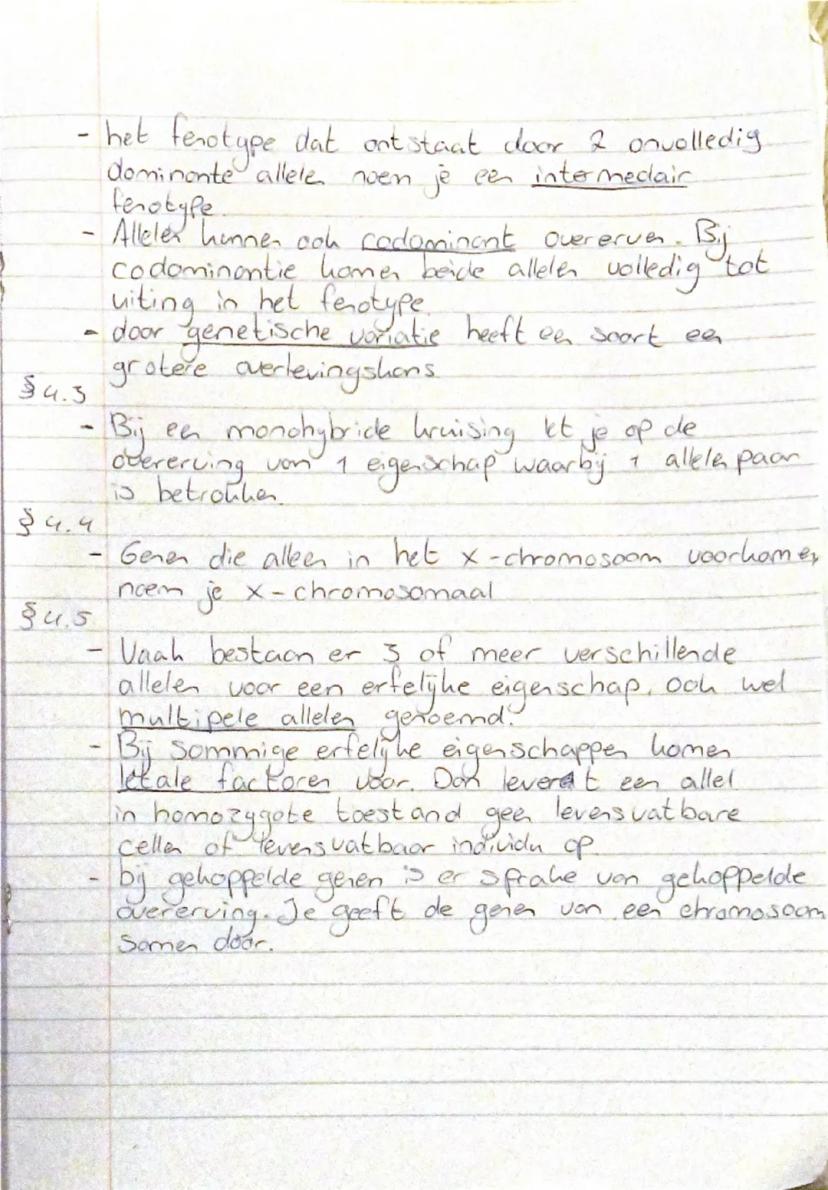 - het fenotype dat ontstaat door 2 onvolledig
dominante allelen noem je een intermedair
fenotype.
- Allelen kunnen ook codominant overerven. Bij
codominantie komen beide allelen volledig tot
uiting in het fenotype.
- door genetische variatie heeft een soort een
grotere overlevingskans
§ 4.3
- Bij een monohybride kruising let je op de
overerving van 1 eigenschap waarbij 1 allelen paar
is betrokken.
§ 4.4
- Genen die alleen in het x-chromosoom voorkomen
noem je x-chromosomaal
§ 4.5
- Vaak bestaan er 3 of meer verschillende
allelen voor een erfelijke eigenschap, ook wel
multipele allelen genoemd.
- Bij sommige erfelijke eigenschappen komen
letale factoren voor. Dan levert een allel
in homozygote toestand geen levensvatbare
cellen of levensvatbaar individu op.
- bij gekoppelde genen is er sprake van gekoppelde
overerving. Je geeft de genen van een chromosoom
samen door.